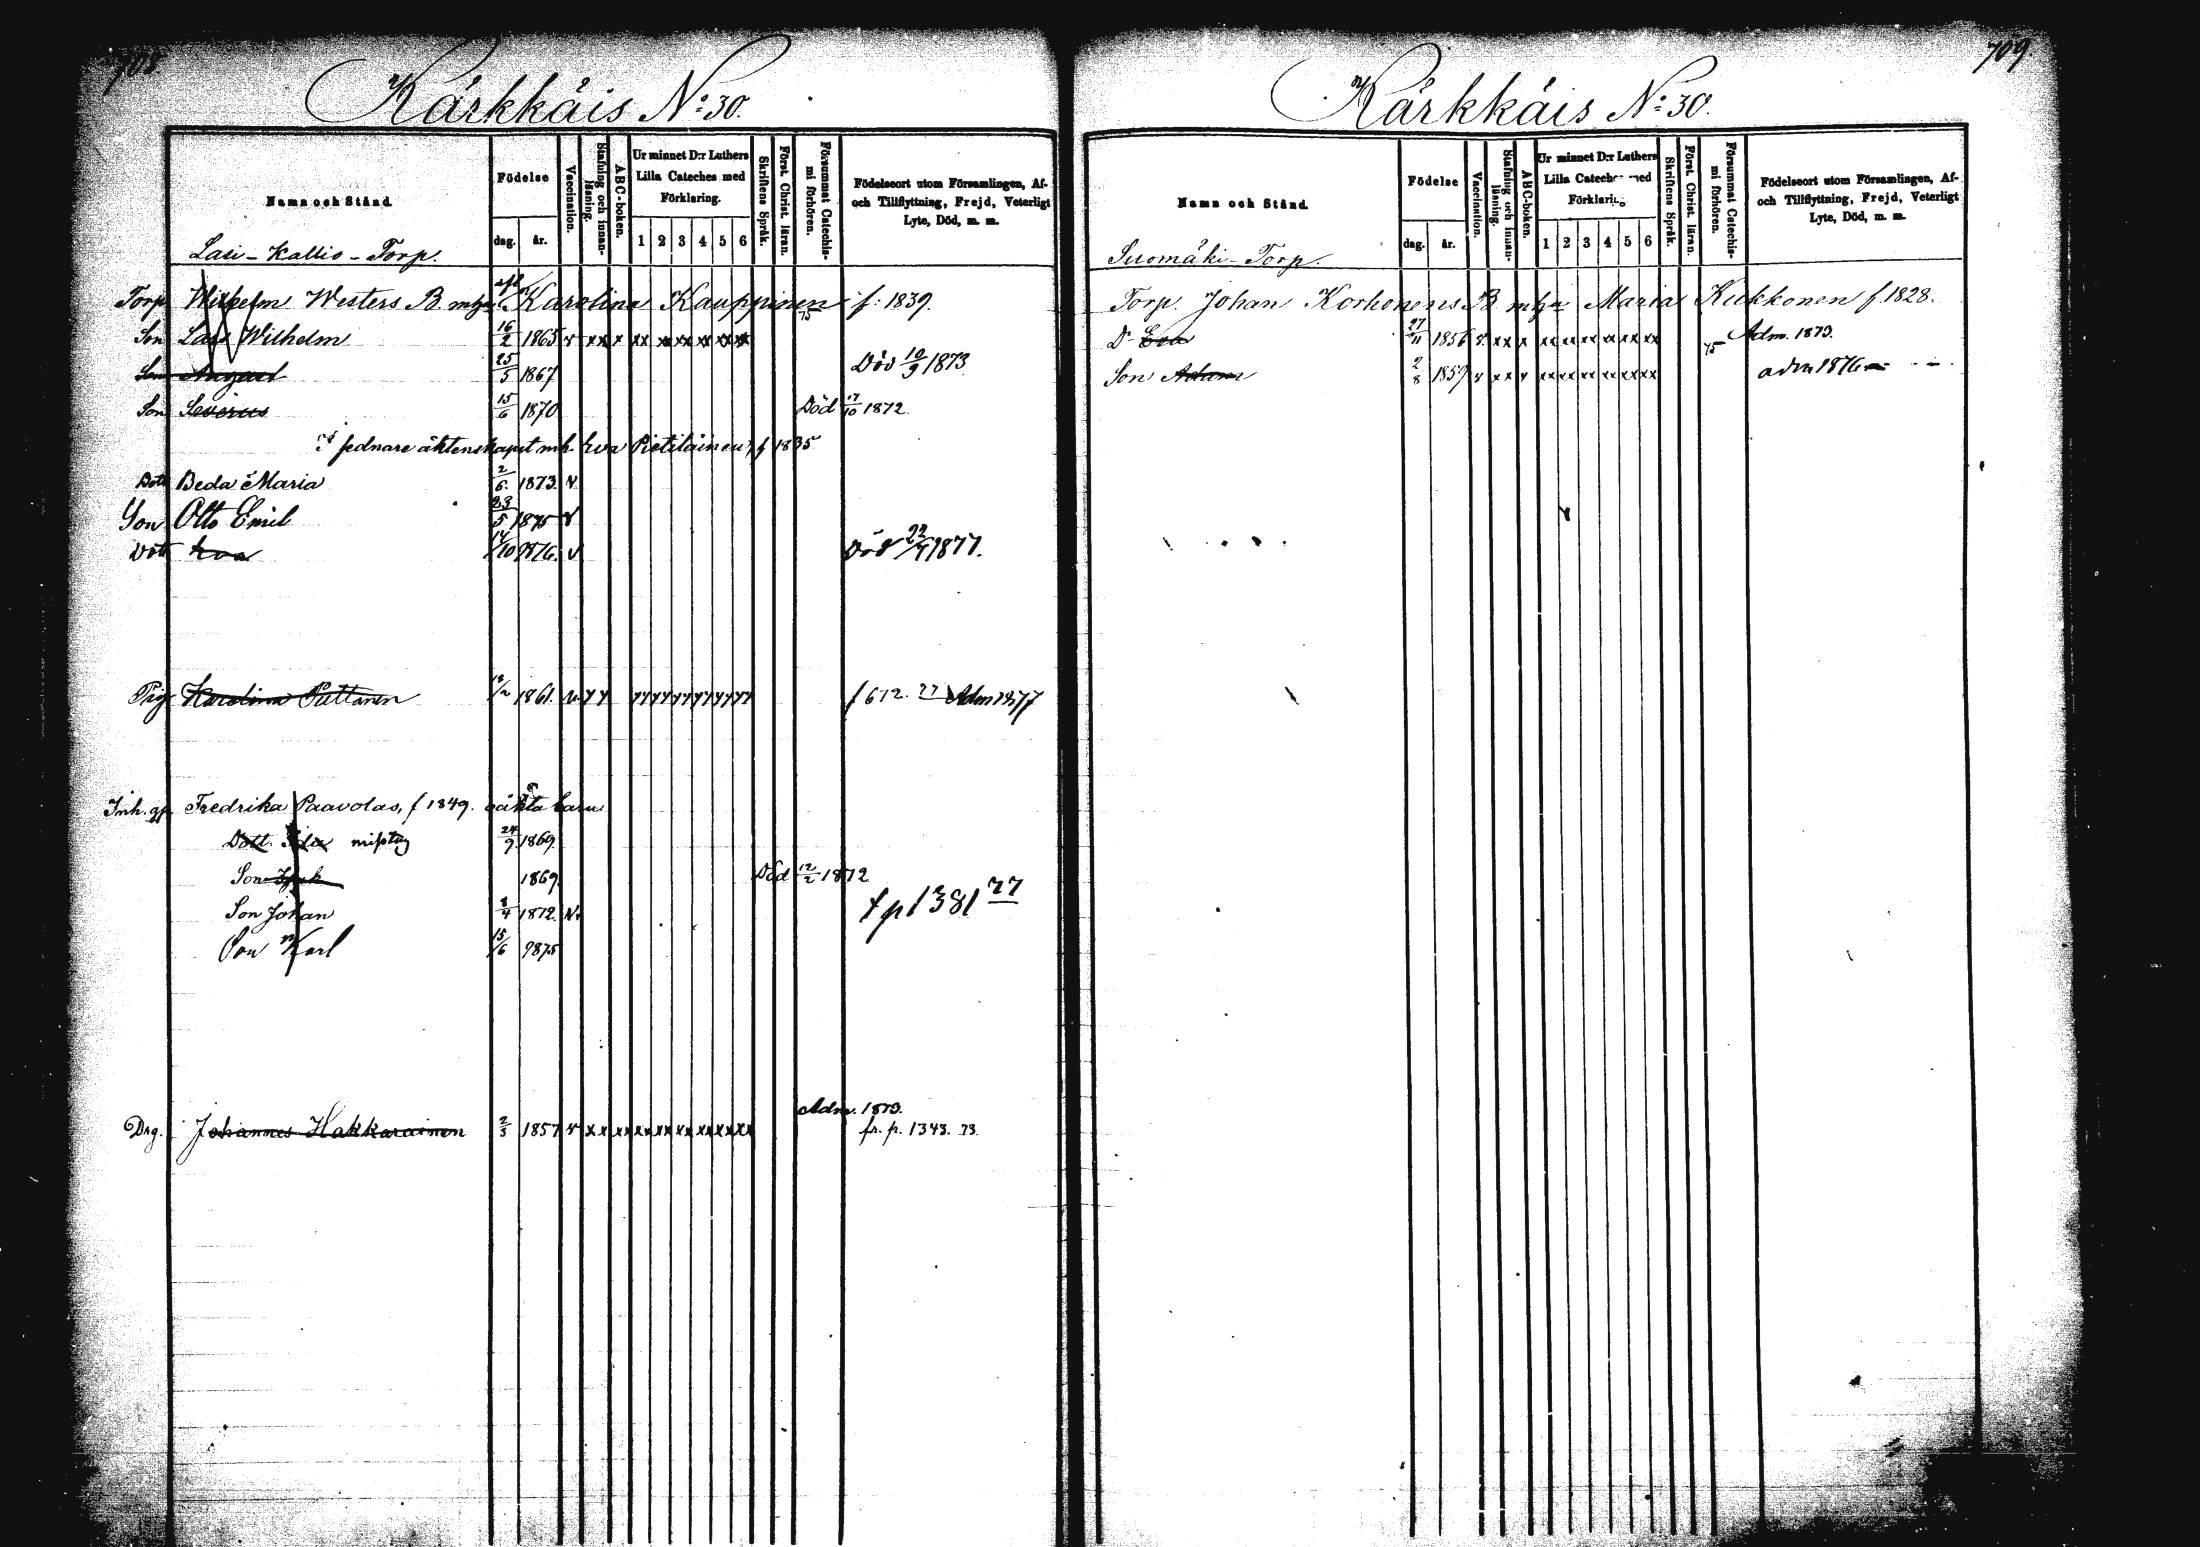 708.
Kärkkäis No: 30.
Namn och Stånd.
Födelse
dag. år.
Vaccination.
Stafning och innan-läsning.
ABC-boken.
Ur minnet D:r Luthers Lilla Cateches med Förklaring.
1 2 3 4 5 6
Skriftens Språk.
Först. Christ. läran.
Försummat Catechis-mi förhören.
Födelseort utom Församlingen, Af- och Tillflyttning, Frejd, Veterligt Lyte, Död, m. m.
Lasi-Kallio-Torp.
Torp. Wilhelm Westers B. mha Karolina Kauppinen f: 1839.
Son Lars Wilhelm 16/2 1865 v xx x xx xx xx xx xx xx 75
Son August 25/5 1867 Död 10/9 1873
Son Severus 15/6 1870 Död 17/10 1872.
I sednare äktenskapet mh. Eva Pietiläinen, f 1835
Dott Beda Maria 2/6. 1873. v.
Son Otto Emil 23/5 1875 v
Dott Eva 14/10 1876. v Död 22/4 1877.
Pig. Karolina Puttonen 18/2 1861. v. f 672. 77 Adm 1877
Inh. qp. Fredrika Paavolas, f 1849. oäkta barn
Dott. Ida 24/9 1869.
Son Isak 1869. Död 12/2 1872
Son Johan 8/4 1872. v. t p 1381 77
Son Karl 15/6 1875
Adm. 1873.
Drg. Johannes Hakkarainen 2/3 1857 v xx xx xx xx xx xx xx xx fr. p. 1343. 73.
709.
Kärkkäis No: 30.
Namn och Stånd.
Födelse
dag. år.
Vaccination.
Stafning och innan-läsning.
ABC-boken.
Ur minnet D:r Luthers Lilla Cateches med Förklaring
1 2 3 4 5 6
Skriftens Språk.
Först. Christ. läran.
Försummat Catechis-mi förhören.
Födelseort utom Församlingen, Af- och Tillflyttning, Frejd, Veterligt Lyte, Död, m. m.
Suomäki-Torp.
Torp. Johan Korhonens B mha Maria Kukkonen f. 1828.
Dr Eva 27/11 1856 v. xx x xx xx xx xx xx xx 75 Adm. 1873.
Son Adam 2/8 1859 v xx v xx xx xx xx xx xx adm 1876